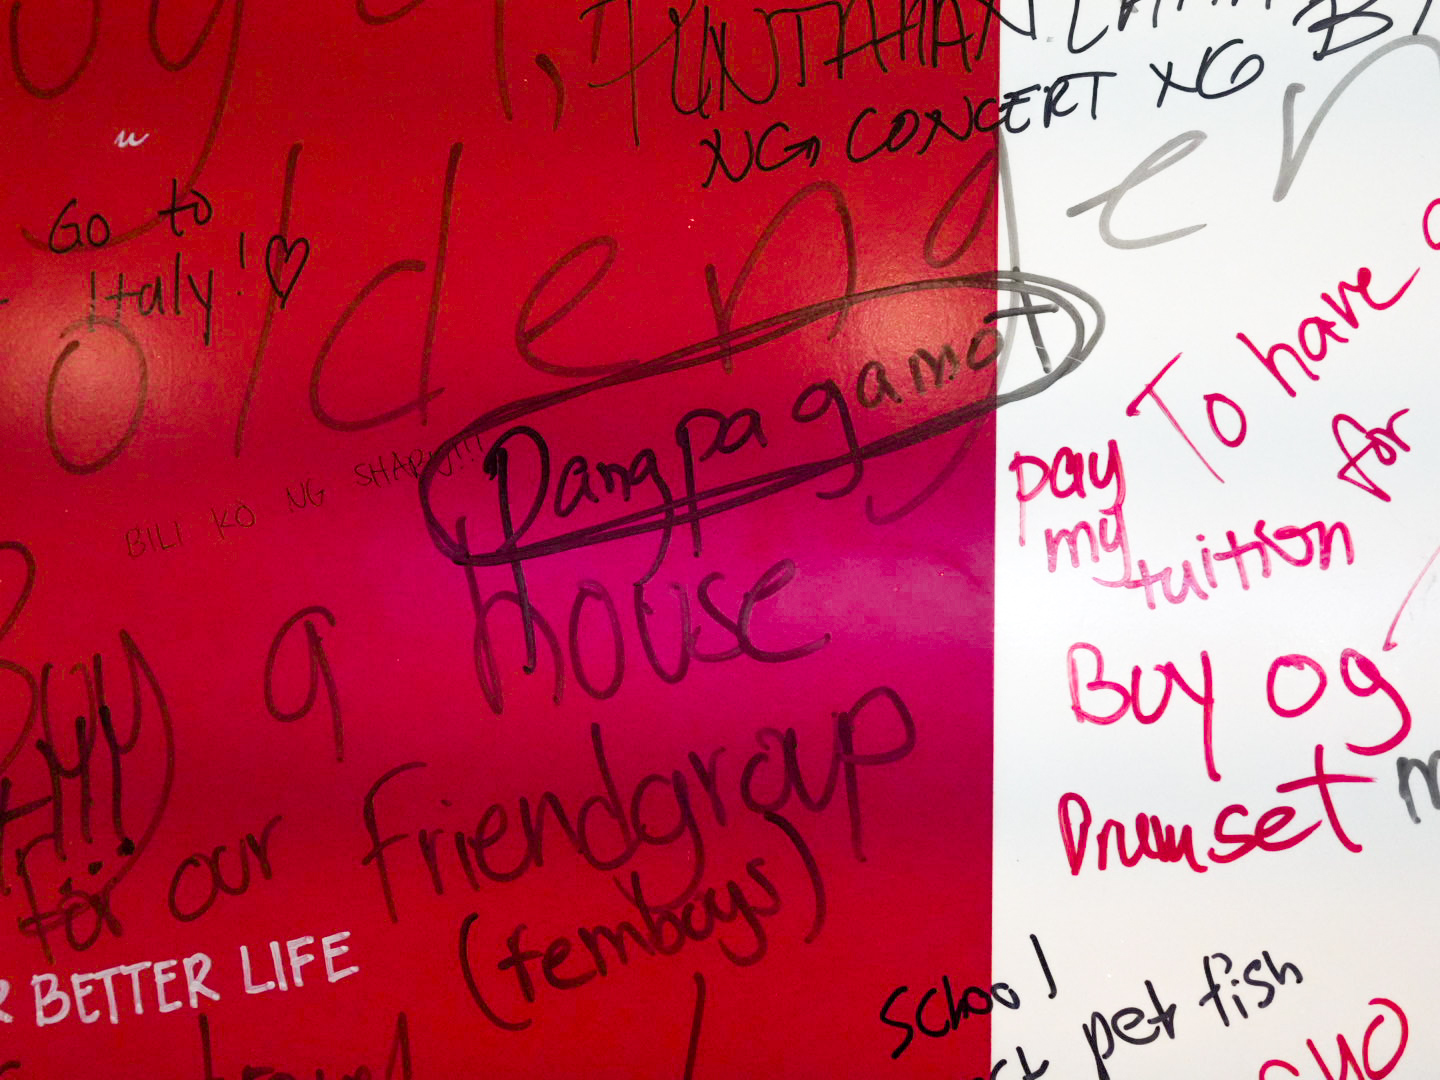 PUNTAHAN LAHAT
NG CONCERT XG
Go to
Italy!
older
BILI KO NG SHABU!!!
Pangpagamot
To have
pay
my
tuition
for
Buy a house
for our friendgroup
(femboys)
Buy og
Drumset
BETTER LIFE
School
pet fish